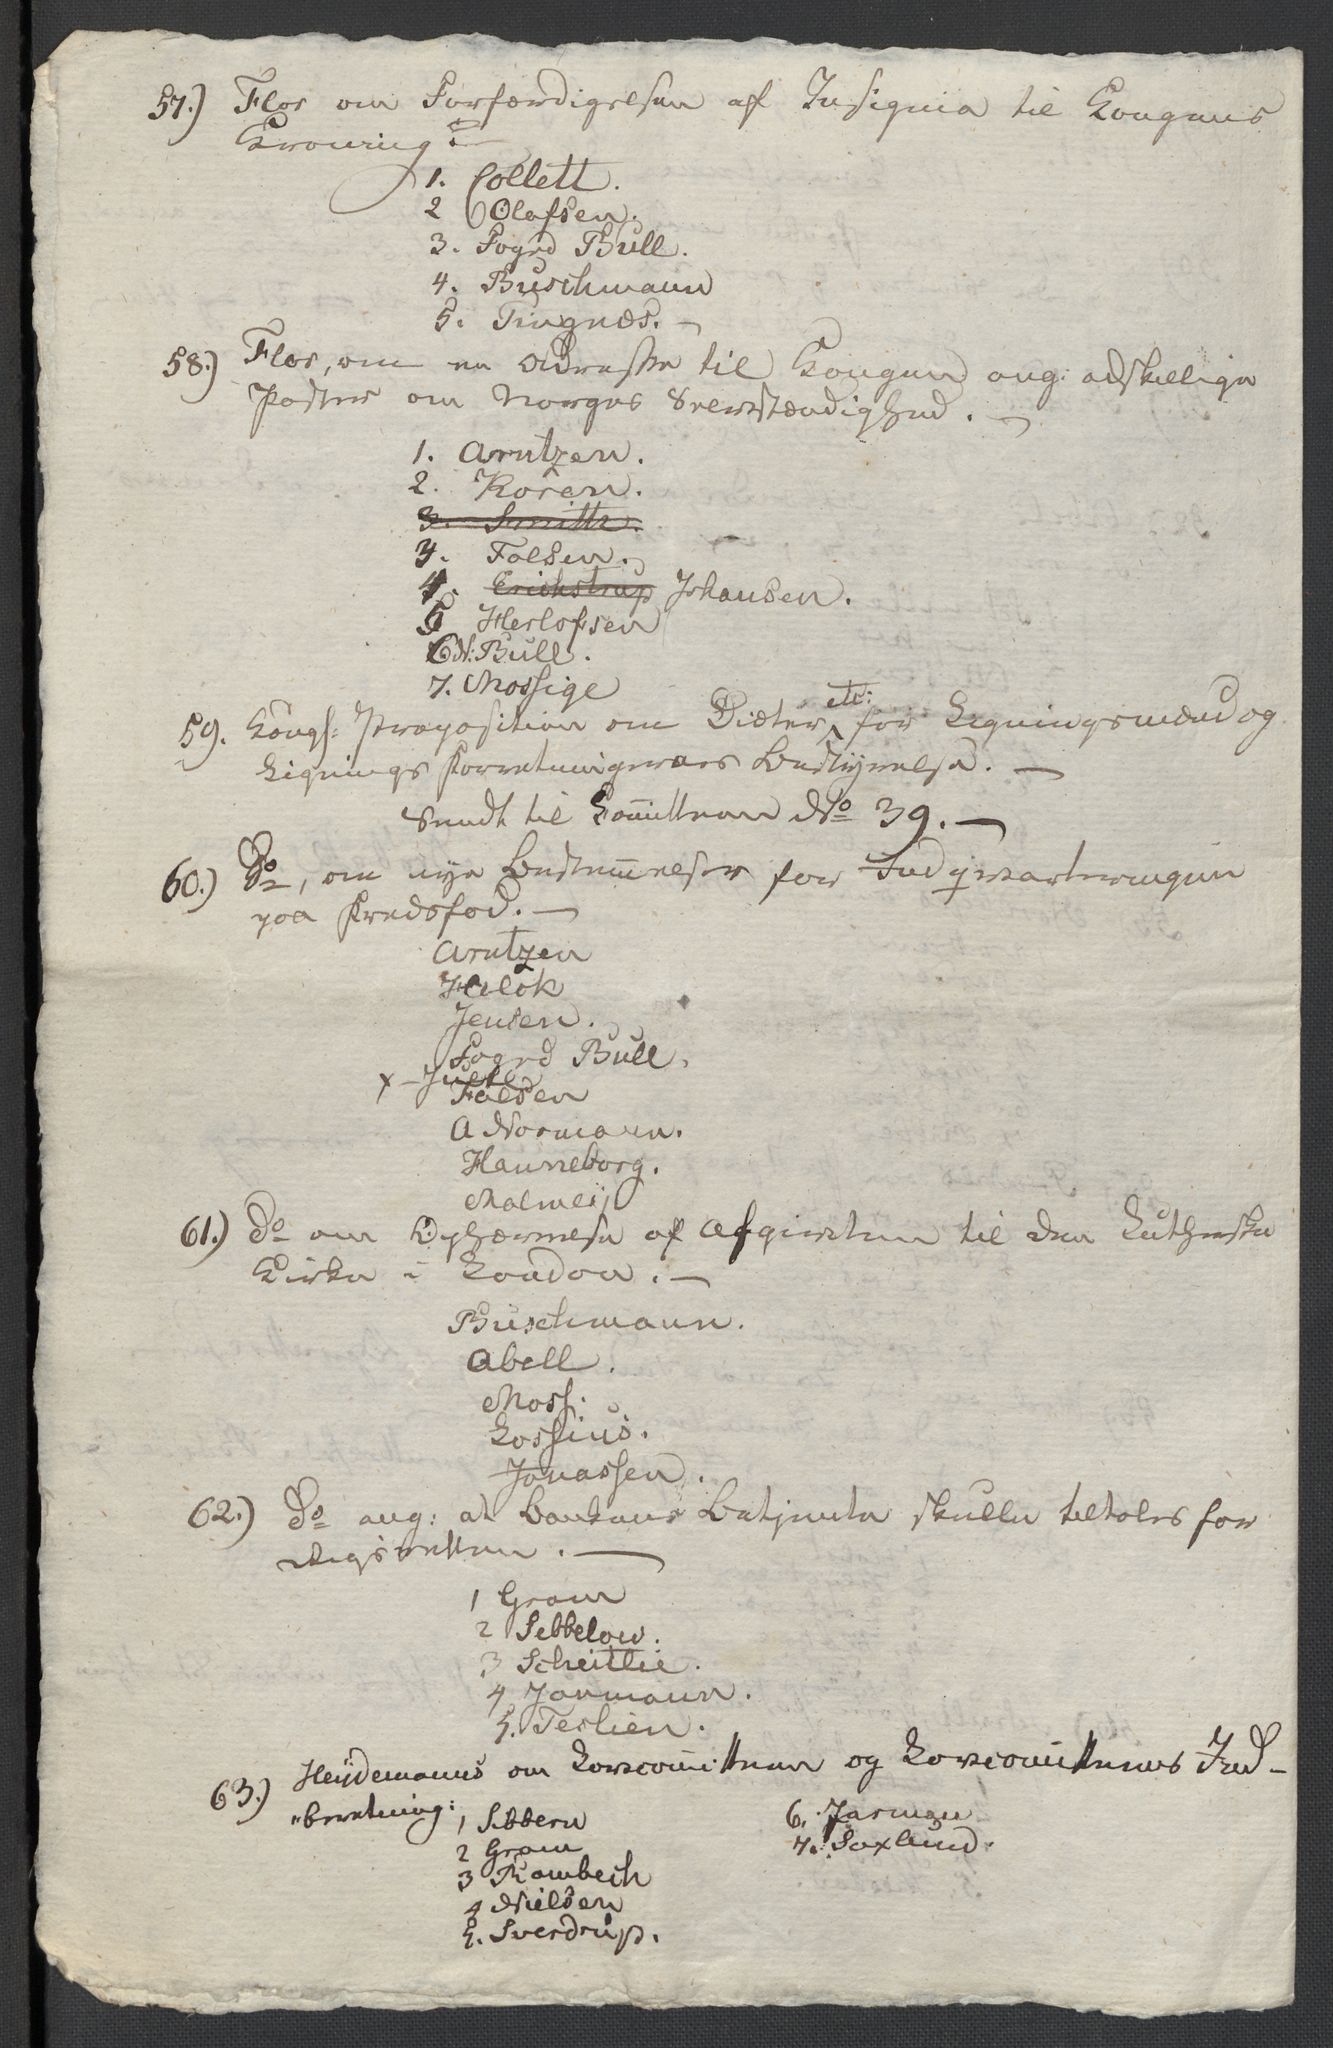 57.) Flor om Forfærdigelsen af Insignia til Kongens
Kroning.
1. Collett.
2 Olafsen.
3. Foged Bull.
4. Buschmann
5. Tingnæs.
58.) Flor, om en Adresse til Kongen ang: adskellige
Poster om Norges Selvstændighed.
1. Arntzen.
2. Koren.
3. Smitt.
3. Falsen.
4. Erichstrup Johansen.
5 Herlofsen
6 N: Bull.
7. Mossige
59. Kongl: Proposition om Diæter etc: for Ligningsmænd og
Ligningsforretningernes Bestyrelse.
Sendt til Comitteen No 39.
60.) Do, om nye Bestemelser for Indqvarteringen
paa Fredsfod.
Arntzen
Falck
Jensen.
Fogd Bull.
x Juel
Falsen
A Normann.
Hanneborg.
Malmeij
61.) Do om Ophævelse af Afgivten til den Lutherske
Kirke i London.
Buschmann.
Abell.
Moss.
Lossius.
Jonassen.
62.) Do ang: at Bankens Betjente skulle tiltales for
Rigsretten.
1 Gram
2 Sebbelow.
3 Scheitlie.
4 Jonmann.
5. Teslien.
63.) Heijdemanns om Lovcomitteen og Lovcomitteens Ind-
"beretning:
1 Sibbern
2 Gram
3 Rambech
4 Nielsen
5. Sverdrup.
6. Jarman
7. Saxlund.